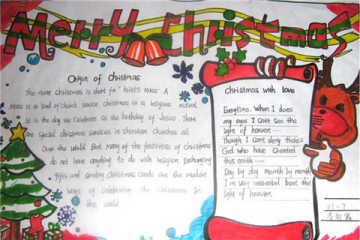 Merry Christmas
Origin of Christmas
The name christmas is short for "hrist's mass". A
mass is a kind of church service christmas is a religious
It is the day we celebrate as the birthday of Jesus. There
the special christmas services in christian churches all
Over the world. But many of the festivities of christmas
do not have anything to do with religion. Exchanging
gifts and sending christmas cards are the modern
ways of celebrating the christmas in
the world.
christmas with love
Everytime. When I
my eyes I can't see the
light of heaven
Though I can't deny
God who have Created
this earth
Day by day month by month
I'm very interested about the
light of heaven